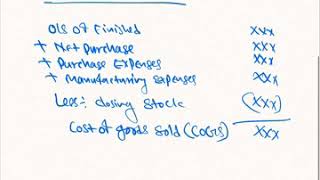 O/s of Finished XXX
+ Net Purchase XXX
+ Purchase Expenses XXX
+ Manufacturing expenses XXX
Less:- closing stock (XXX)
Cost of goods sold (COGS) XXX